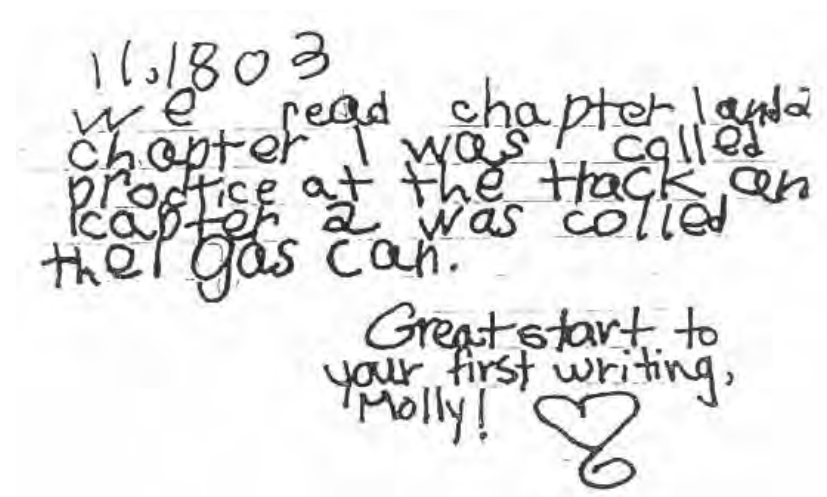 11.1803
we read chapter 1 and 2
chapter 1 was called
practice at the track an
kcapter 2 was colled
the gas can.
Great start to
your first writing,
Molly!